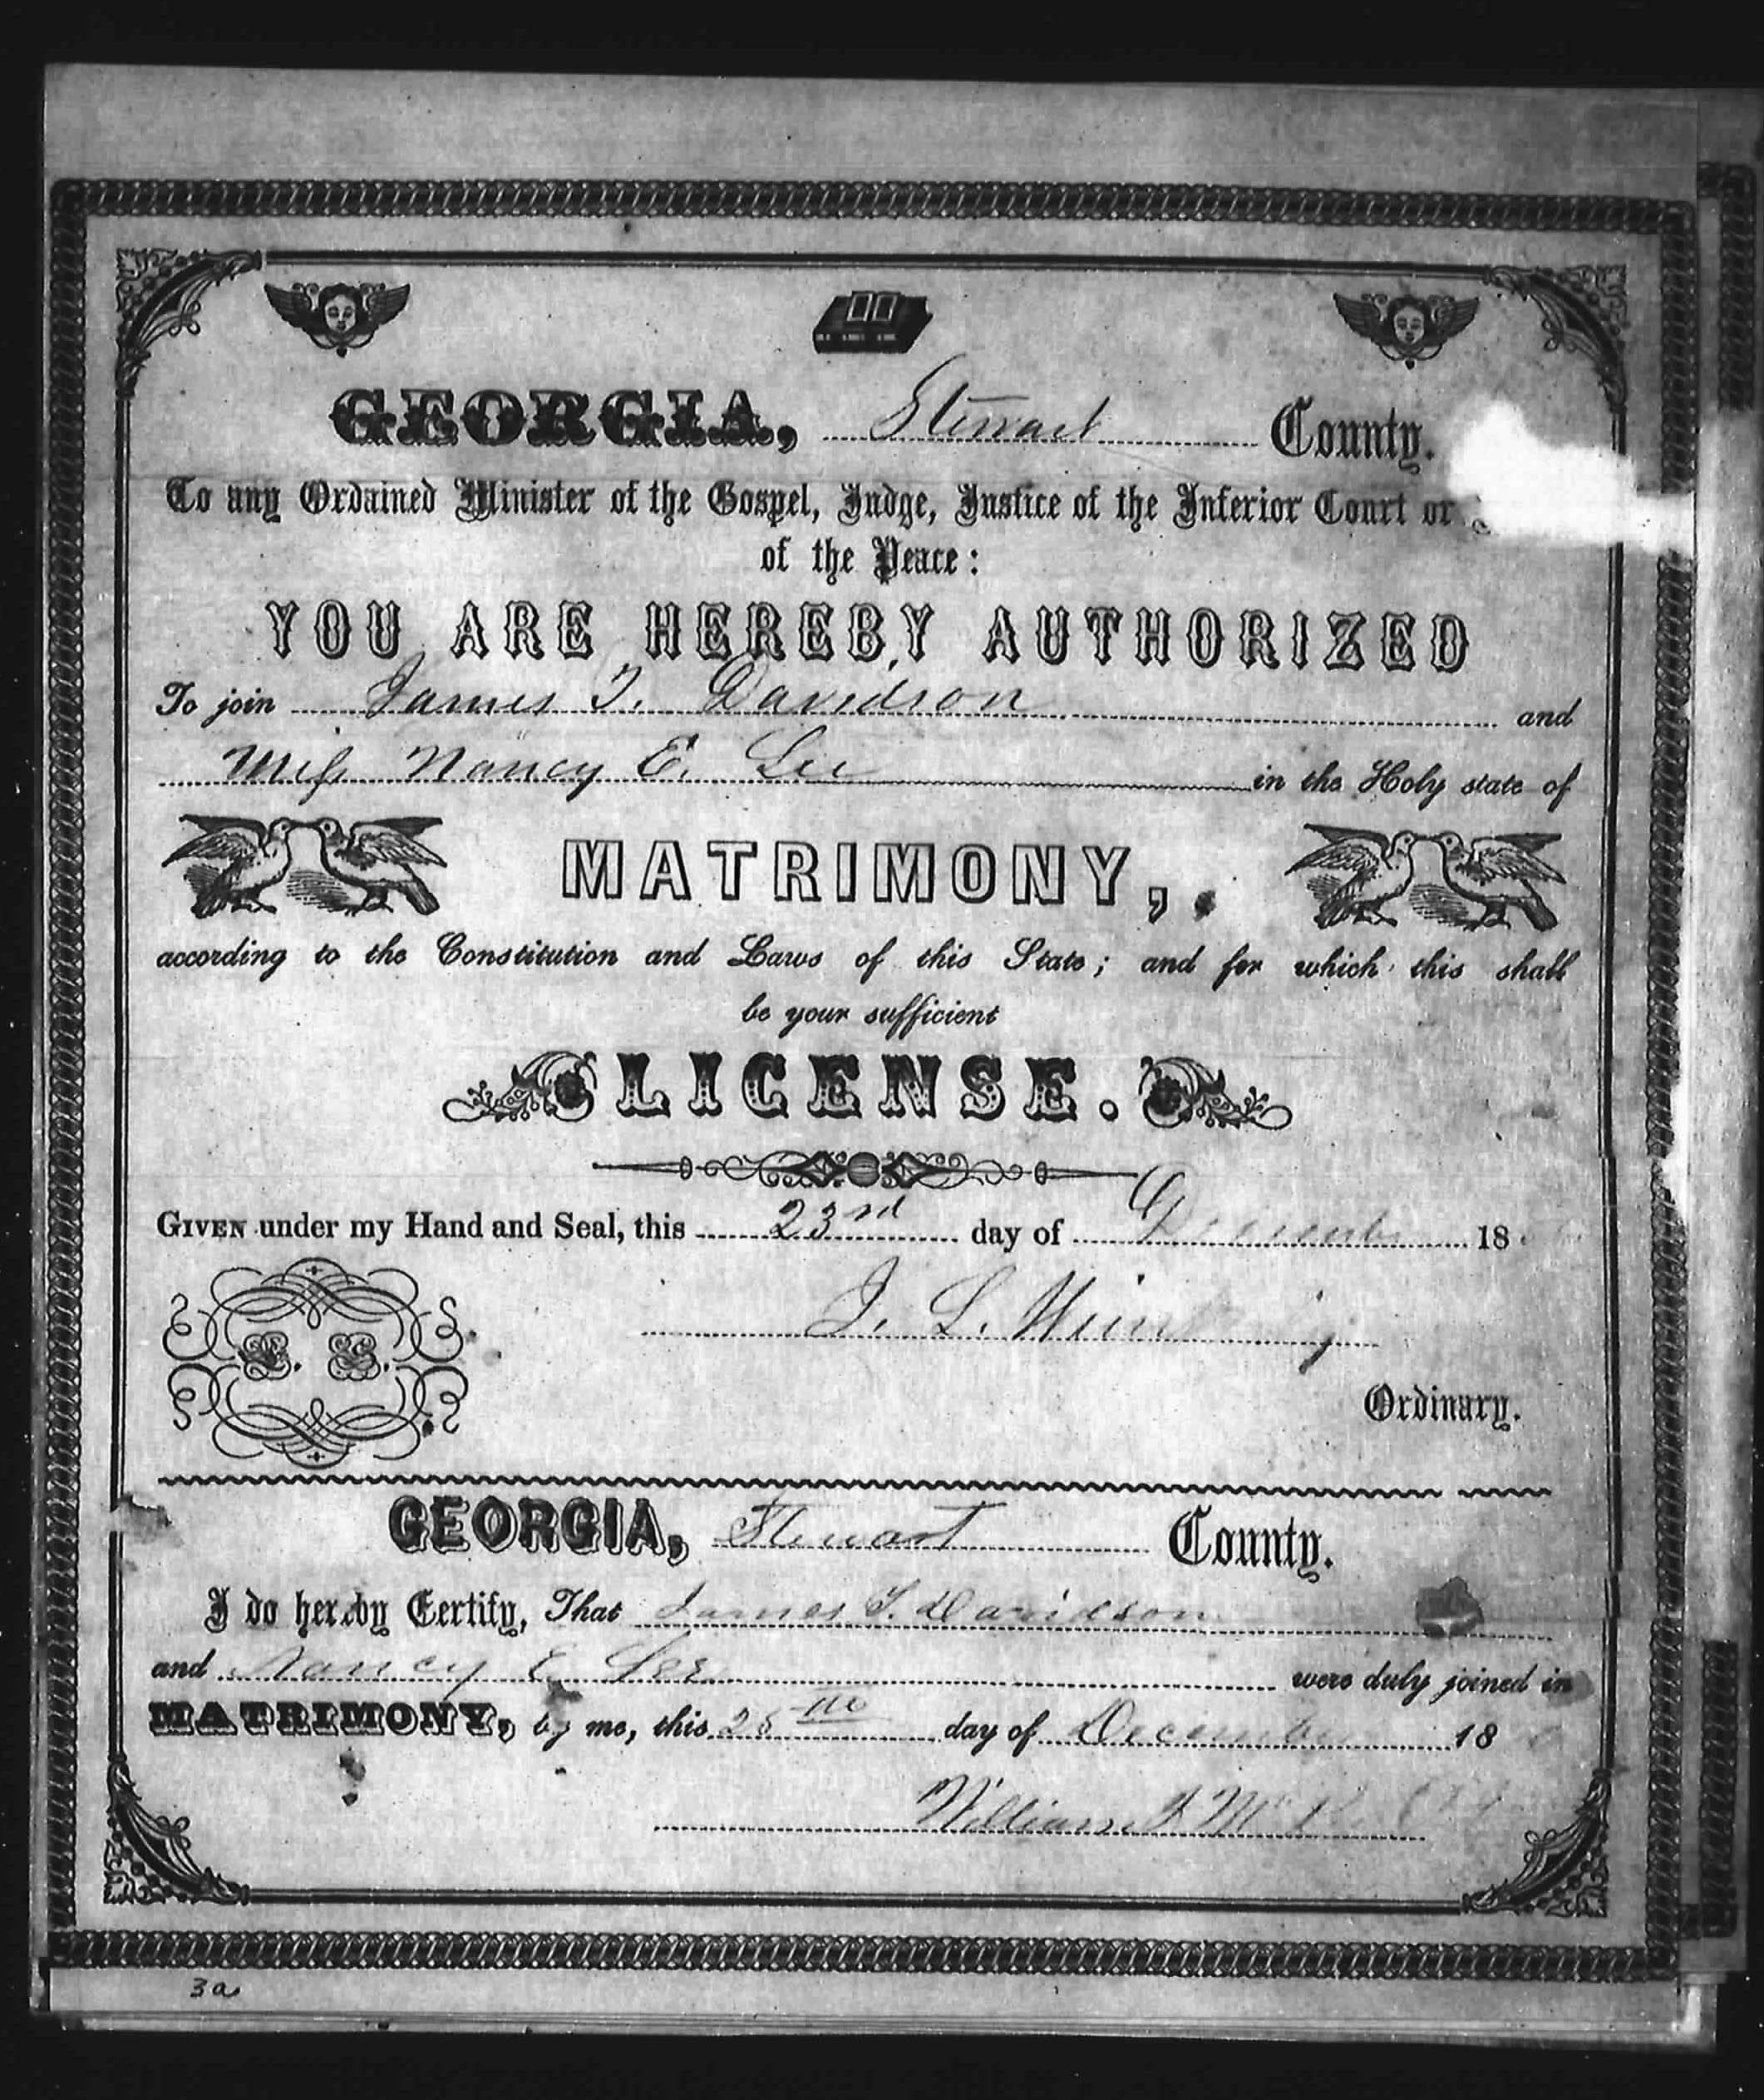 GEORGIA, Stewart County.
To any Ordained Minister of the Gospel, Judge, Justice of the Inferior Court or
of the Peace:
YOU ARE HEREBY AUTHORIZED
To join James T. Davidson and
Miss Nancy E. Lee in the Holy state of
MATRIMONY,
according to the Constitution and Laws of this State; and for which this shall
be your sufficient
LICENSE.
GIVEN under my Hand and Seal, this 23rd day of December 18
J. L. Wimberly
L. S.
Ordinary.
GEORGIA, Stewart County.
I do hereby Certify, That James T. Davidson
and Nancy E. Lee were duly joined in
MATRIMONY, by me, this day of December 18
William
3a